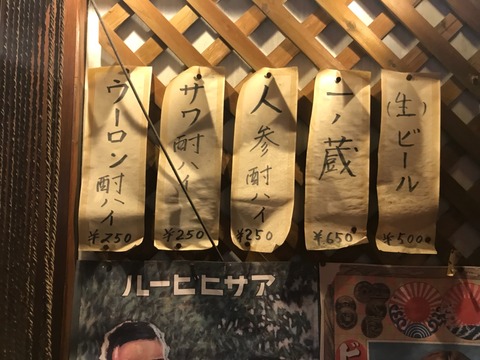 (生)ビール
¥500
一ノ蔵
¥650
人参酎ハイ
¥250
サワ酎ハイ
¥250
ウーロン酎ハイ
¥250
アサヒビール